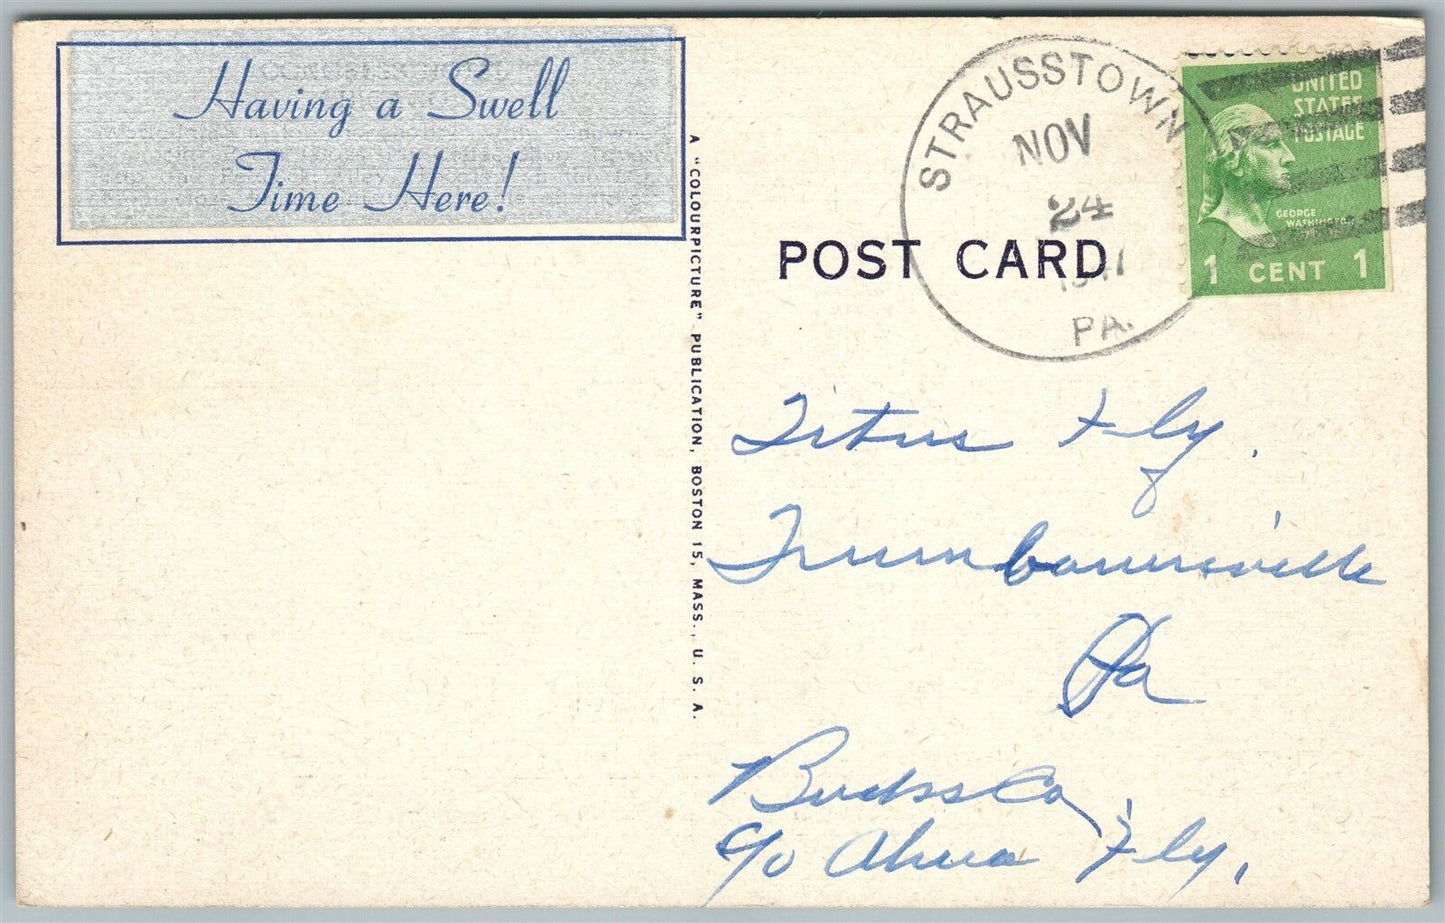 Having a Swell
Time Here!
A "COLOURPICTURE" PUBLICATION, BOSTON 15, MASS., U. S. A.
STRAUSSTOWN
NOV
24
PA.
UNITED
STATES
POSTAGE
GEORGE
WASHINGTON
1 CENT 1
POST CARD
Titus Fly.
Trumbauersville
Pa
Bucks Co,
c/o Fly,